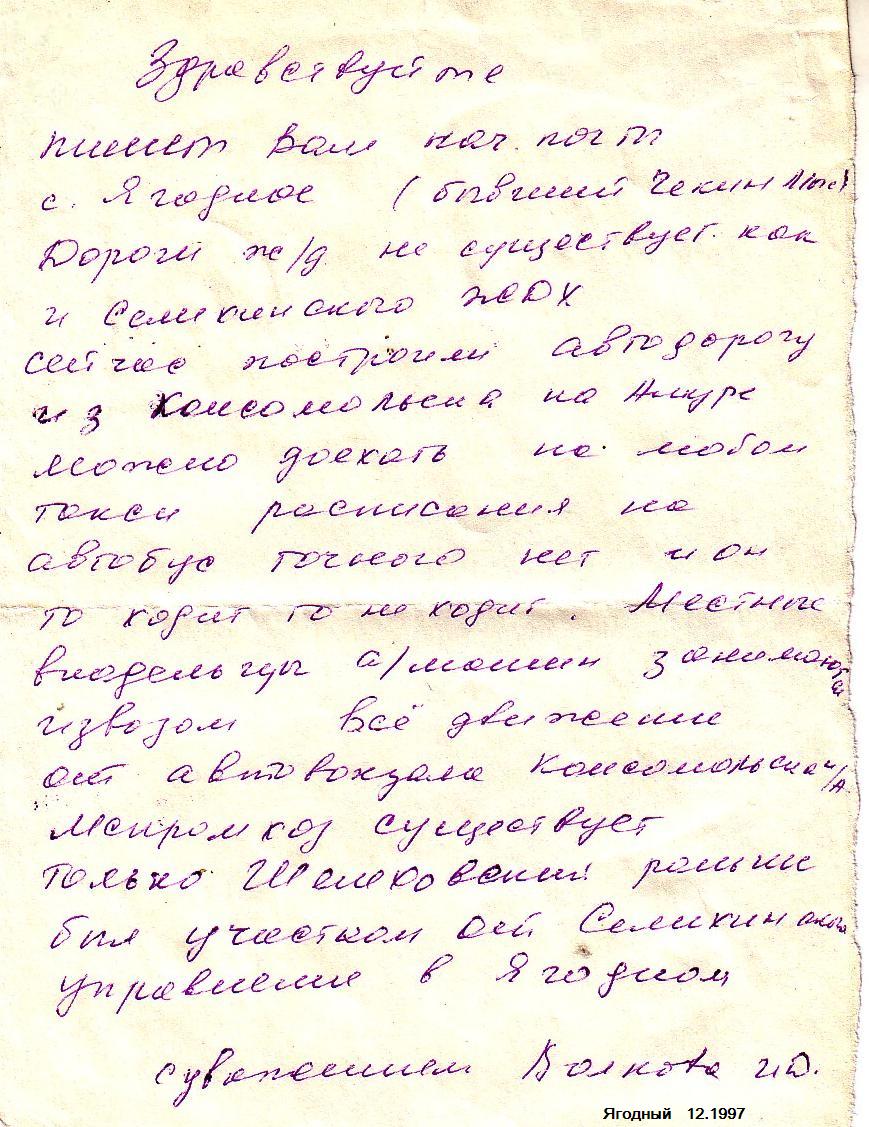 Здравствуйте
пишет Вам нач. почты
с. Ягодное (бывший Чекин Мыс)
Дороги ж/д не существует. как
и Селихинского ЖДХ
сейчас построили автодорогу
из Комсомольска на Амуре
можно доехать на любом
такси расписания на
автобус точного нет и он
то ходит то не ходит. Местные
владельцы а/машин занимаются
извозом всё движение
от автовокзала Комсомольска н/А
существует
только Шелеховский раньше
был участком от Селихинского
управления в Ягодном
с уважением Волкова И.О.
Ягодный 12.1997